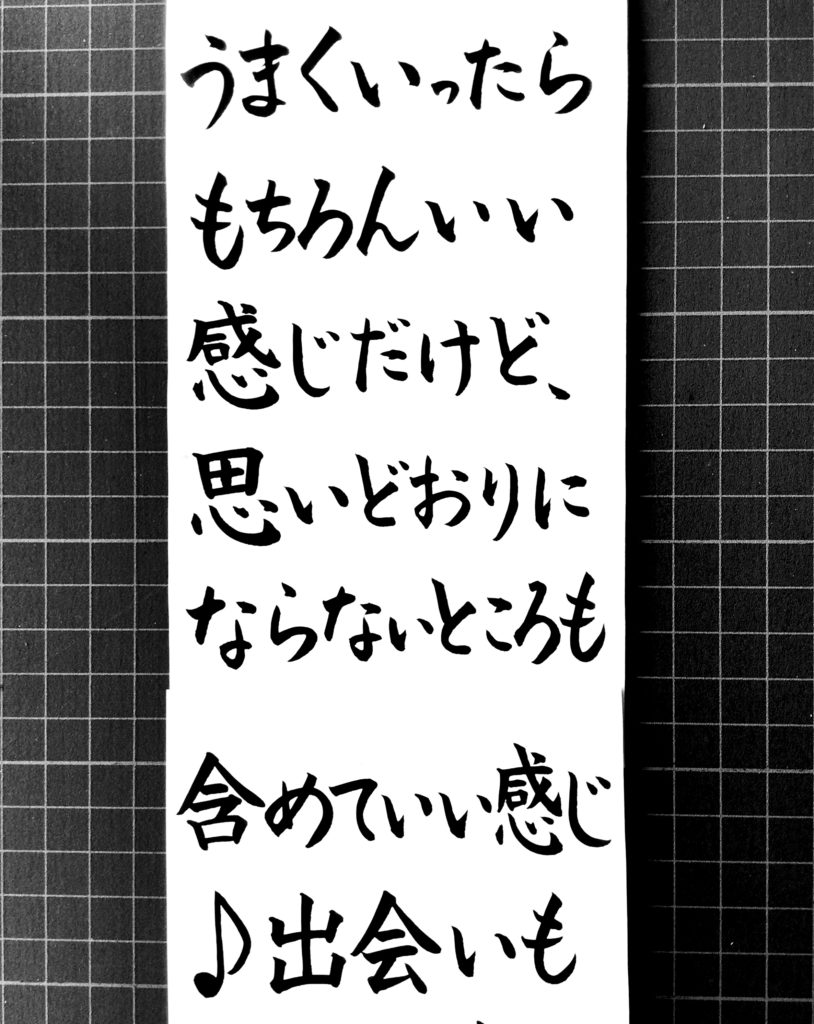 うまくいったら
もちろんいい
感じだけど、
思いどおりに
ならないところも
含めていい感じ
♪出会いも